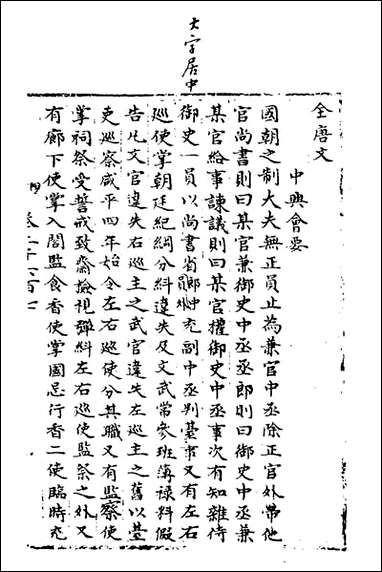 大字居中
全唐文
中興會要
國朝之制大夫無正員止為兼官中丞除正官外帶他
官尚書則曰某官兼御史中丞丞郎則曰御史中丞兼
某官給事諫議則曰某官權御史中丞事次有知雜侍
御史一員以尚書省郎中員外郎充副中丞判臺事又有左右
巡使掌朝廷紀綱分糾違失及文武常參班簿祿料假
告凡文官違失右巡主之武官違失左巡主之舊以臺
吏巡察咸平四年始令左右巡使分其職又有監察使
掌祠祭受誓戒致齋撿視彈糾左右巡使監祭之外又
有廊下使掌入閤監食香使掌國忌行香二使臨時充